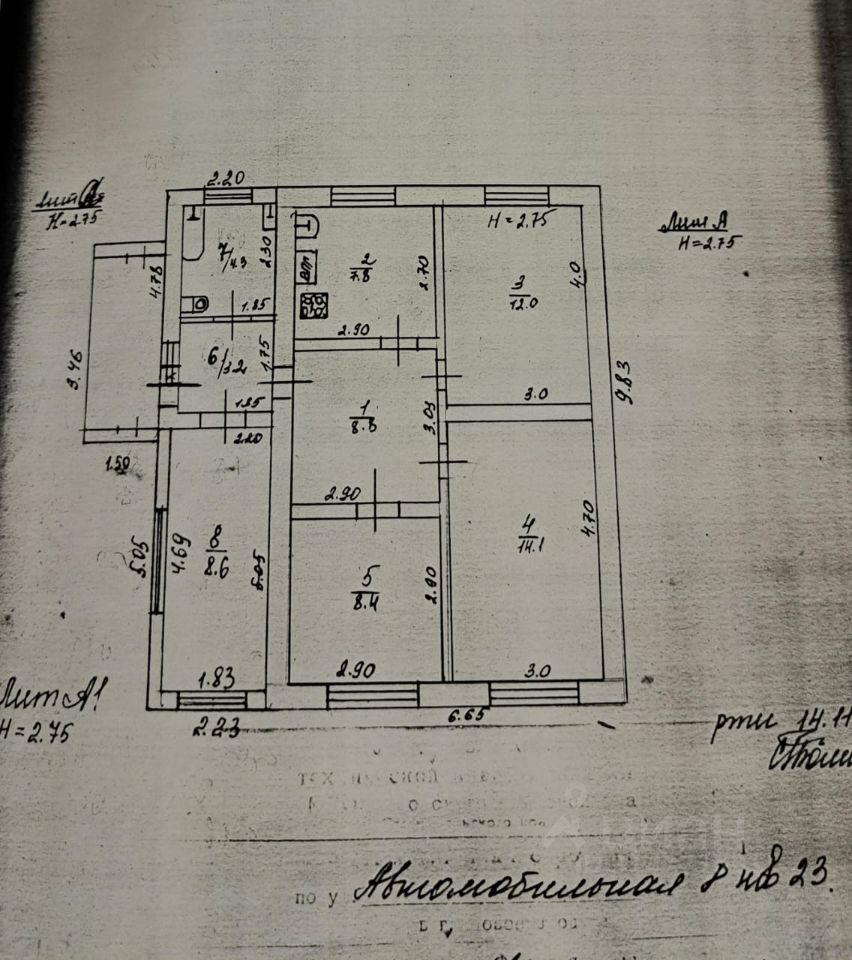 2.20
Лит
К=2.75
H=2.75
Лит А
H=2.75
7/4.3
2.30
4.78
1.85
2
7.8
2.70
2.90
3
12.0
4.0
3.0
9.83
3.46
6/3.2
1.75
1.85
2.20
1.50
1
8.8
3.03
2.90
5.05
4.69
8
8.6
5.05
5
8.4
2.90
2.90
4
14.1
4.70
3.0
1.83
2.23
6.65
Лит А1
H=2.75
14.11
по у Автомобильная 8 кв 23.